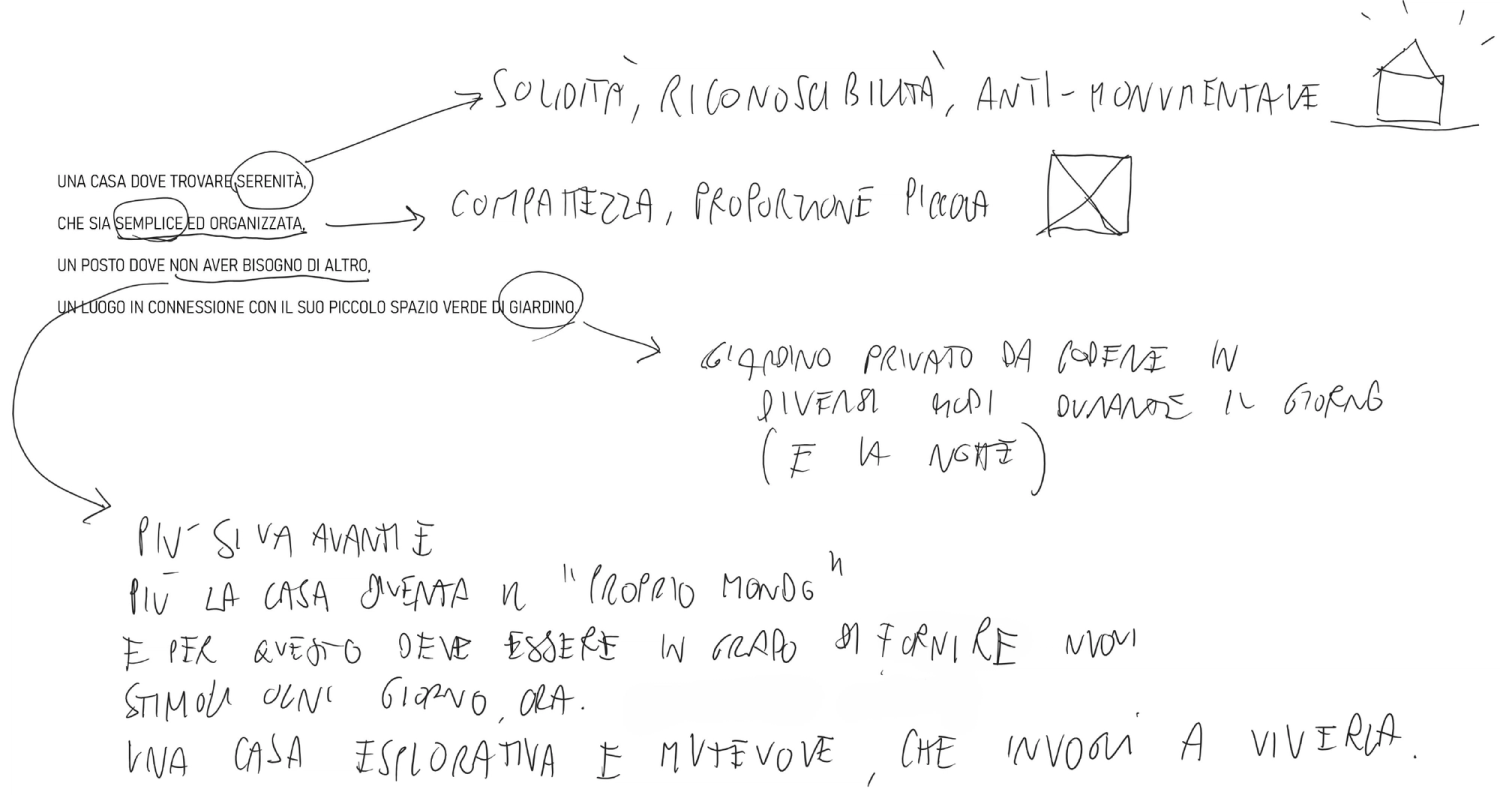 SOLIDITÀ, RICONOSCIBILITÀ, ANTI-MONUMENTALE
UNA CASA DOVE TROVARE SERENITÀ,
CHE SIA SEMPLICE ED ORGANIZZATA,
UN POSTO DOVE NON AVER BISOGNO DI ALTRO,
UN LUOGO IN CONNESSIONE CON IL SUO PICCOLO SPAZIO VERDE DI GIARDINO.
COMPATTEZZA, PROPORZIONE PICCOLA
GIARDINO PRIVATO DA GODERE IN
DIVERSI MODI DURANTE IL GIORNO
(E LA NOTTE)
PIÙ SI VA AVANTI E
PIÙ LA CASA DIVENTA IL "PROPRIO MONDO"
E PER QUESTO DEVE ESSERE IN GRADO DI FORNIRE NUOVI
STIMOLI OGNI GIORNO, ORA.
UNA CASA ESPLORATIVA E MUTEVOLE, CHE INVOGLI A VIVERLA.